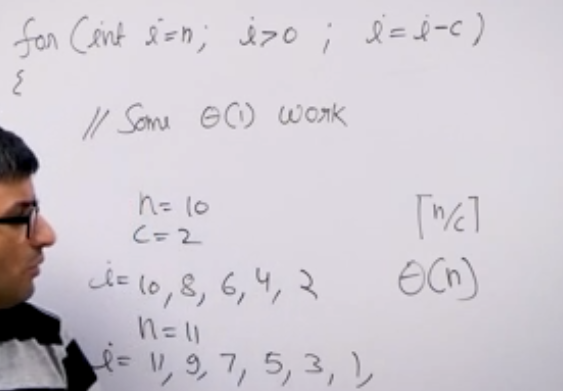 for (int i=n; i>0 ; i=i-c)
{
// Some θ(1) work
n= 10
c=2
i= 10, 8, 6, 4, 2
n=11
i= 11, 9, 7, 5, 3, 1,
⌈n/c⌉
θ(n)